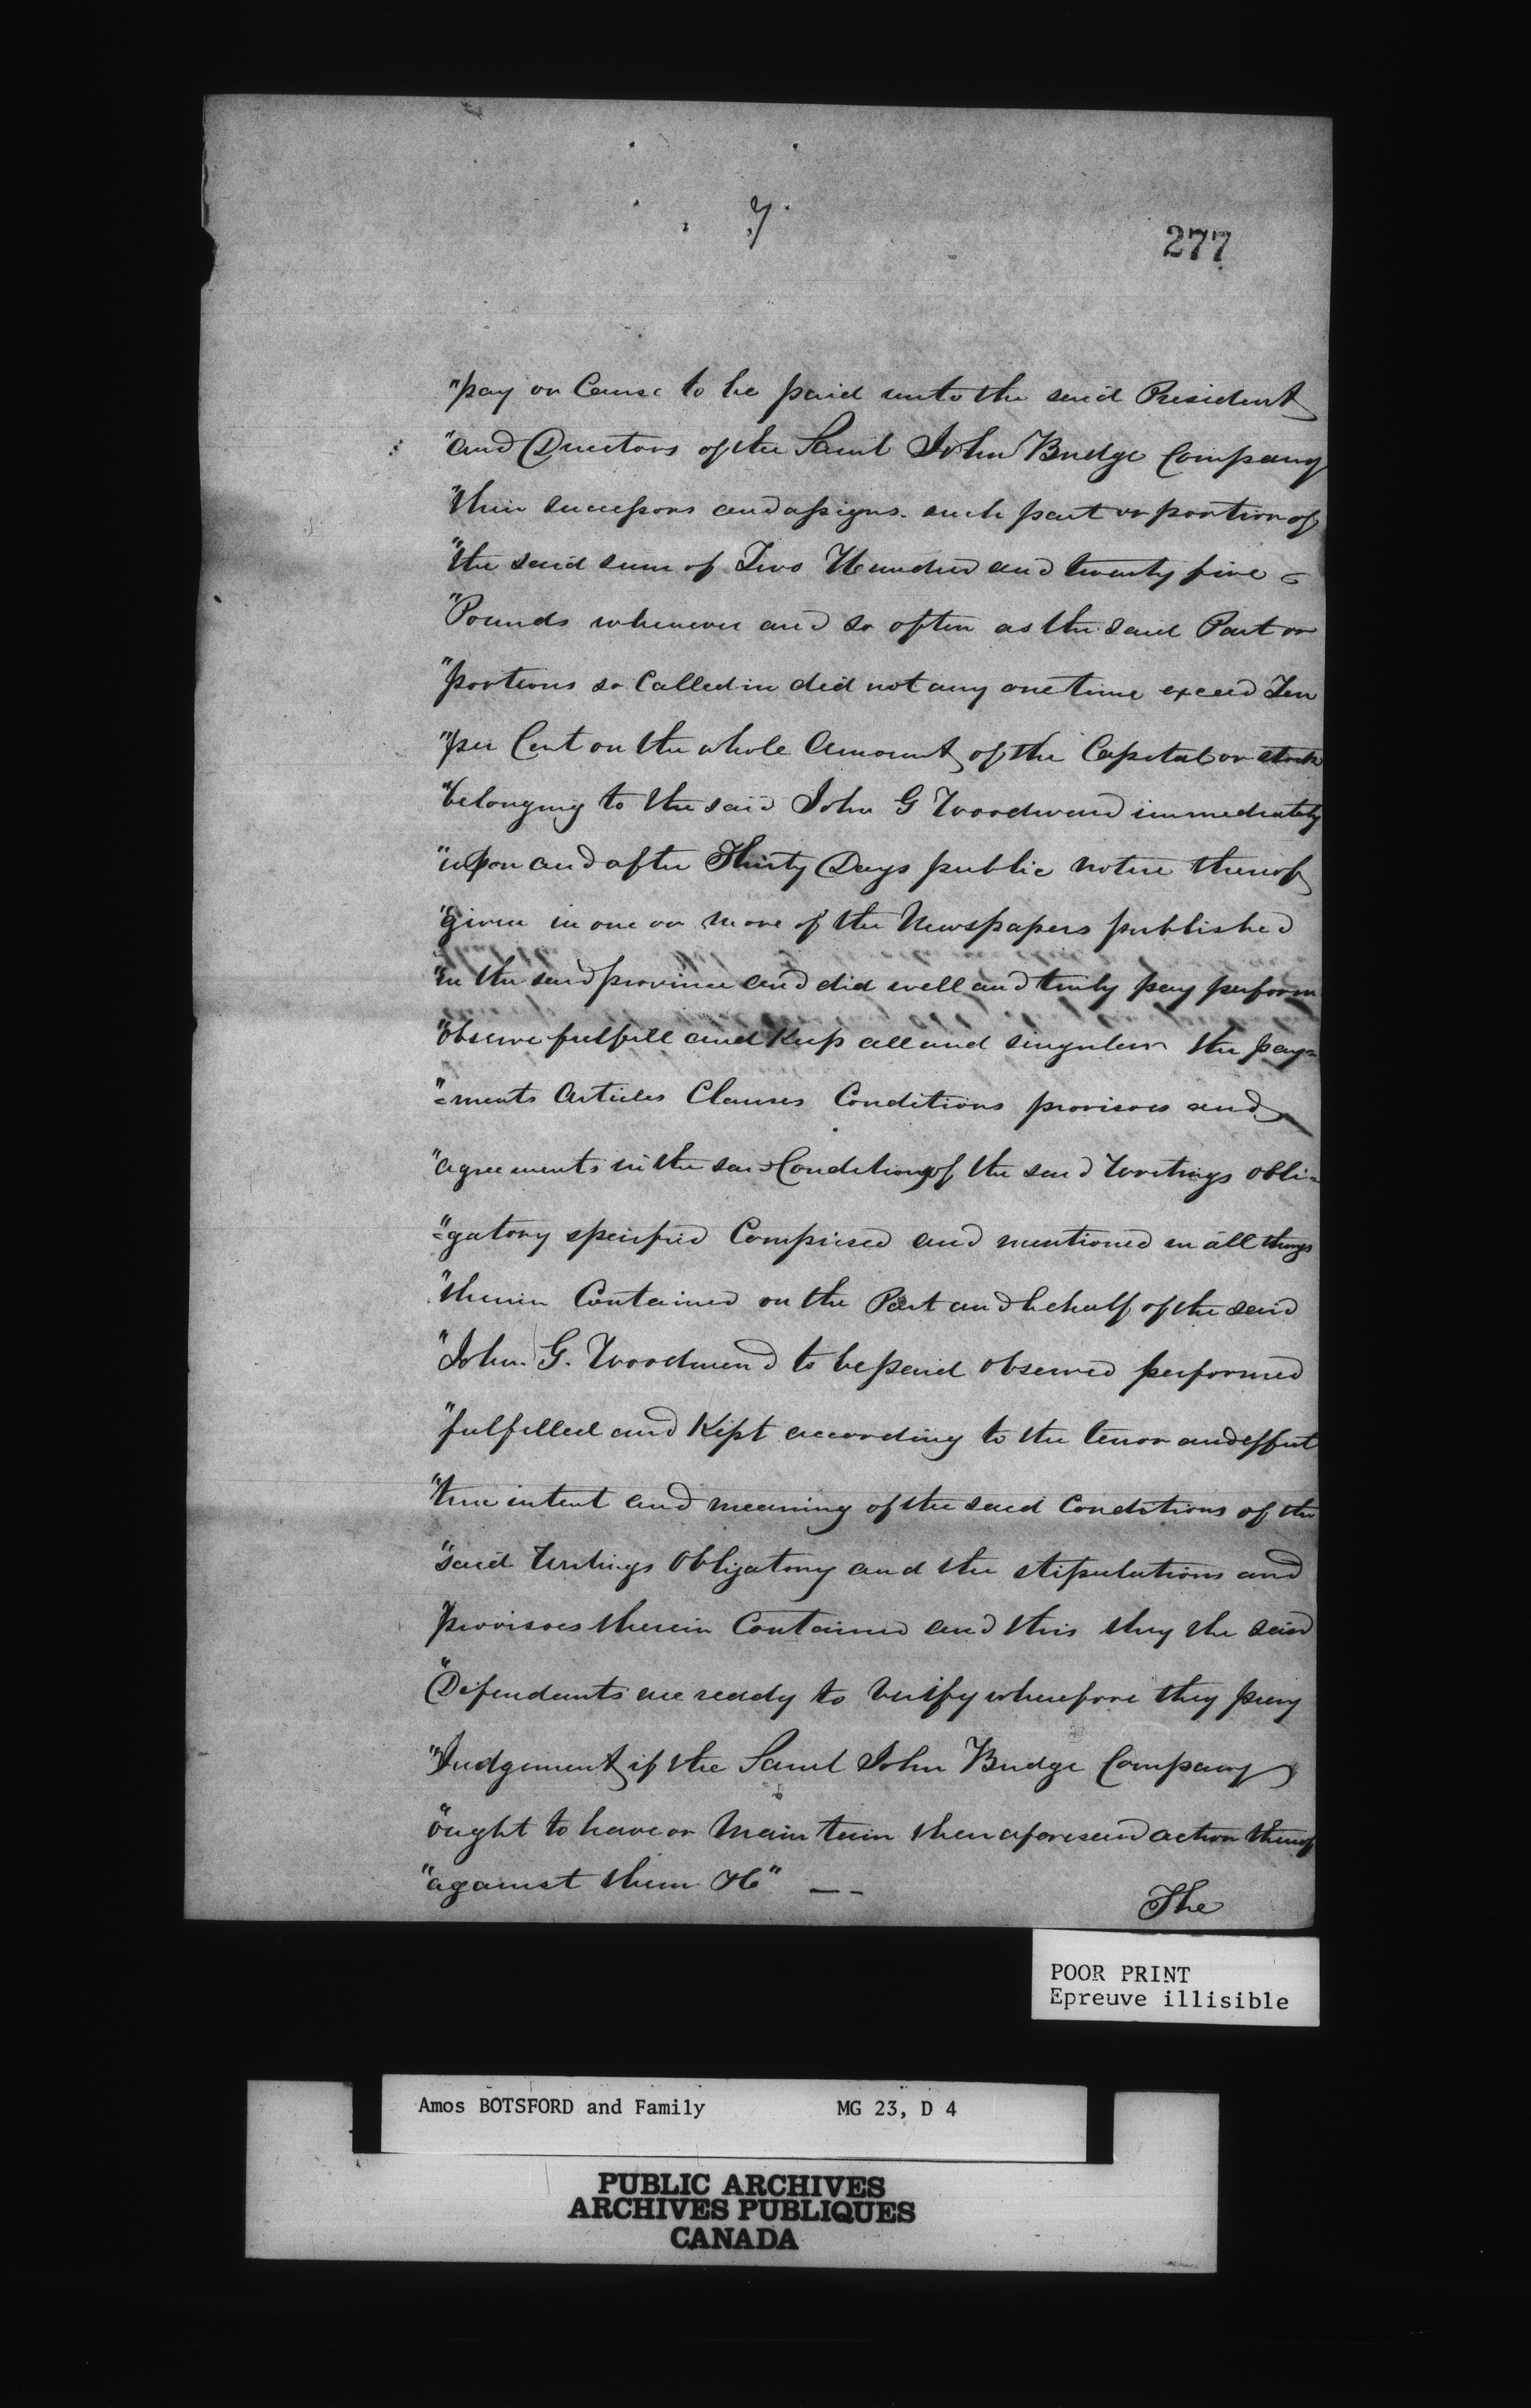 7.
277
"pay or Cause to be paid unto the said President
"and Directors of the Saint John Bridge Company
"their successors and assigns. such part or portion of
"the said sum of Two Hundred and twenty five
"Pounds whenever and so often as the said Part or
"portions so Called in did not any one time exceed Ten
"per Cent on the whole Amount of the Capital or stock
"belonging to the said John G Woodward immediately
"upon and after Thirty Days public notice thereof
"given in one or more of the Newspapers published
"in the said province and did well and truly pay perform
"observe fulfill and Keep all and singular the pay=
"=ments Articles Clauses Conditions provisoes and
"agreements in the said Conditions of the said Writings obli=
"=gatory specified Comprised and mentioned in all things
"therein Contained on the Part and behalf of the said
"John. G. Woodward to be paid observed performed
"fulfilled and Kept according to the tenor and effect
"true intent and meaning of the said Conditions of the
"said Writings Obligatory and the stipulations and
"provisoes therein Contained and this they the said
"Defendants are ready to verify wherefore they pray
"Judgement if the Saint John Bridge Company
"ought to have or Maintain their aforesaid action thereof
"against them &c" --
The
POOR PRINT
Epreuve illisible
Amos BOTSFORD and Family MG 23, D 4
PUBLIC ARCHIVES
ARCHIVES PUBLIQUES
CANADA